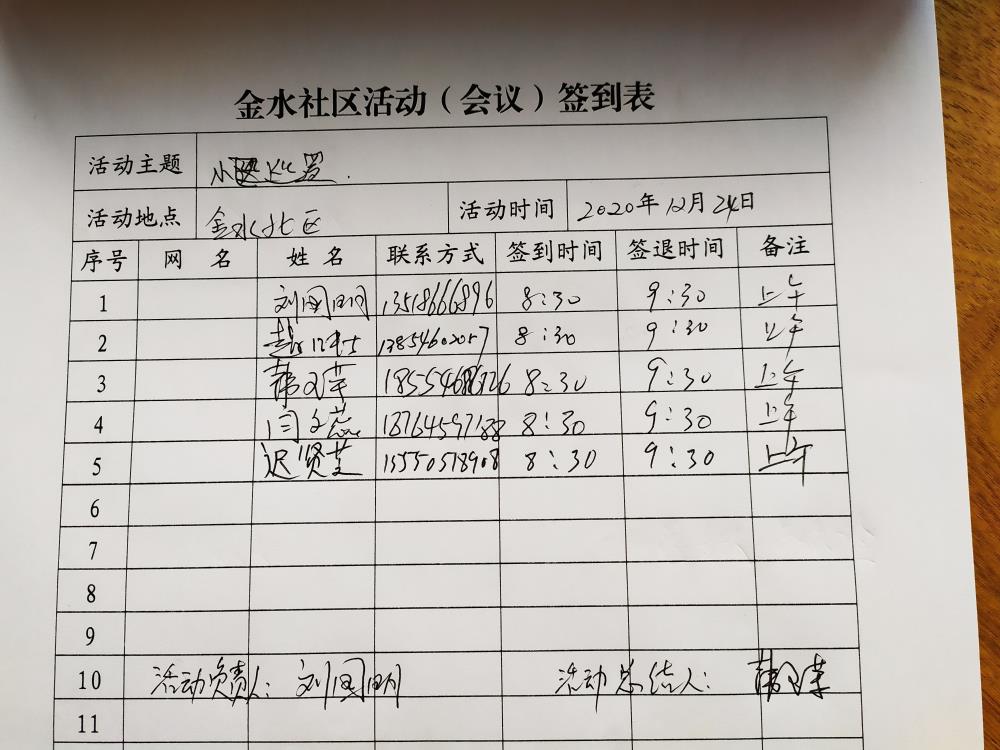 金水社区活动（会议）签到表
活动主题 小区巡逻.
活动地点 金水社区 活动时间 2020年12月24日
序号 网 名 姓 名 联系方式 签到时间 签退时间 备注
1 刘国明 13518666896 8:30 9:30 上午
2 8:30 9:30 上午
3 8:30 9:30 上午
4 8:30 9:30 上午
5 迟贤芝 15550518908 8:30 9:30 上午
6
7
8
9
10 活动负责人: 刘国明 活动总结人:
11